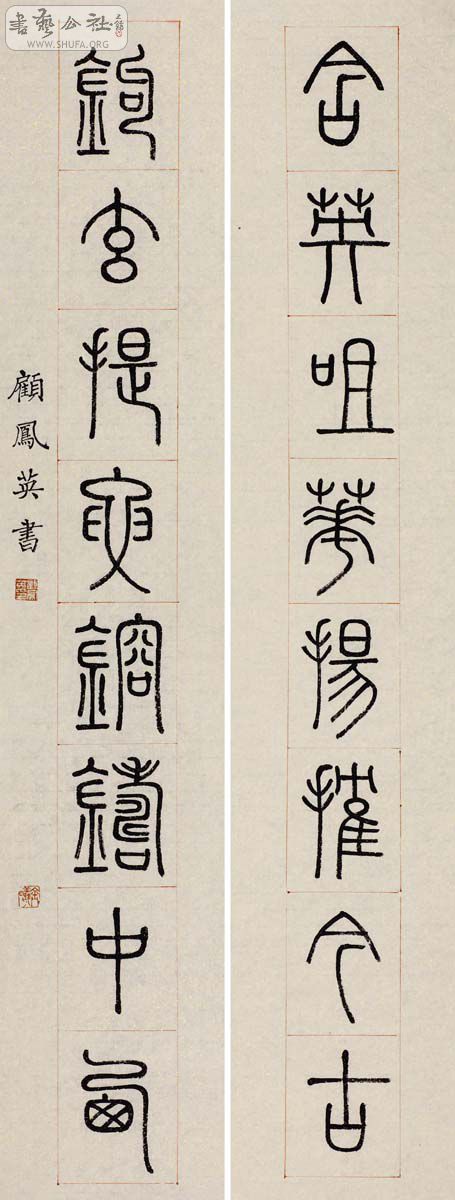 含英咀華揚搉今古
鉤玄提要鎔鑄中西
顧鳳英書
書藝公社
WWW.SHUFA.ORG